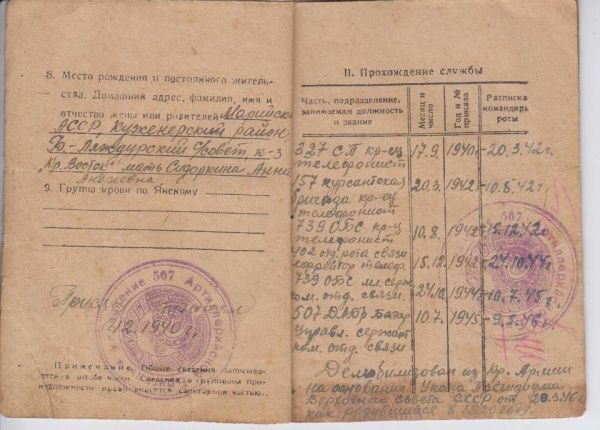 8. Место рождения и постоянного житель-
ства. Домашний адрес, фамилия, имя и
отчество жены или родителей Марийская
АССР, Куженерский район
совет, к-з
Кр. Восток мать Сидоркина Анна
Андреевна
9. Группа крови по Янскому
1940 г.
567 Артиллерийск
Примечание. Общие сведения записыва-
ются в штабе части. Сведения о групповой при-
надлежности крови вносятся санитарной частью.
II. Прохождение службы
Часть, подразделение, занимаемая должность и звание
Месяц и число
Год и № приказа
Расписка командира роты
327 СП кр-ец 17.9. 1940 – 20.3.42 г.
телефонист
157 курсантская 20.3. 1942 – 10.8.42 г.
бригада кр-ец
телефонист
739 ОБС кр-ц 10.8. 1942 – 15.12.42 г.
телефонист
402 отд. рота связи 15.12. 1942 – 24.10.44 г.
телеф.
739 ОБС мл. серж. 24.10. 1944 – 10.7.45 г.
ком. отд. связи.
507 Батар. 10.7. 1945 – 9.5.46 г.
Управл. сержант
ком. отд. связи
Демобилизован из Кр. Армии
на основании Указа Президиума
Верховного совета СССР от 20.3.46 г.
как родившийся в 1920 году.